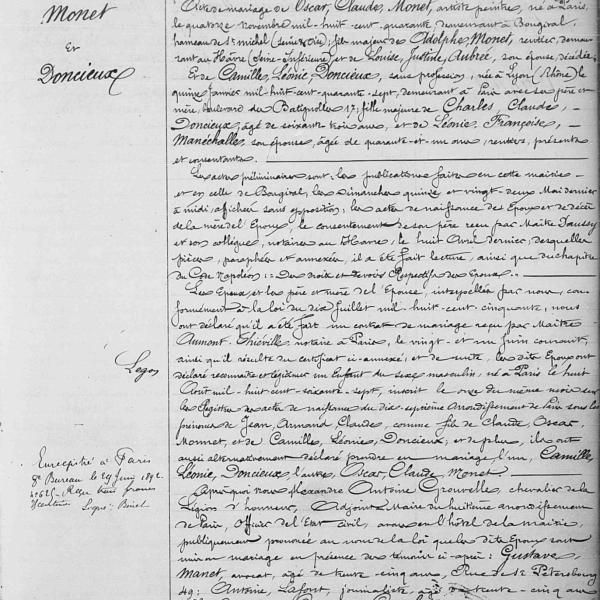 Monet
Et
Doncieux
Acte de mariage de Oscar, Claude, Monet, artiste peintre, né à Paris,
le quatorze novembre mil-huit-cent-quarante, demeurant à Bougival,
hameau de St Michel (Seine & Oise); fils majeur de Adolphe, Monet, rentier, demeu-
rant au Hâvre (Seine-Inférieure) et de Louise, Justine, Aubrée, son épouse, décédée;
Et de Camille, Léonie, Doncieux, sans profession, née à Lyon (Rhône) le
quinze Janvier mil-huit-cent-quarante-sept, demeurant à Paris avec ses père et
mère, boulevard des Batignolles 17; fille majeure de Charles, Claude,
Doncieux, âgé de soixante trois ans, et de Léonie, Françoise,
Manéchalle, son épouse, âgée de quarante-et-un ans, rentiers, présents
et consentants.
Les actes préliminaires sont: les publications faites en cette mairie
et en celle de Bougival, les Dimanches quinze et vingt-deux Mai dernier
à midi, affichées sans opposition; les actes de naissance des Epoux et de décès
de la mère de l'Epoux, le consentement de son père reçu par Maître
et son collègue, notaires au Hâvre, le huit Avril dernier; desquelles
pièces, paraphées et annexées, il a été fait lecture, ainsi que du chapitre
du Code Napoléon:: Des droits et devoirs Respectifs des Epoux.
Les Epoux, et les père et mère de l'Epouse, interpellés par nous, con-
formément à la loi du dix Juillet mil-huit-cent-cinquante, nous
ont déclaré qu'il a été fait un contrat de mariage reçu par Maître
Aumont-Thiéville notaire à Paris, le vingt-et un Juin courant,
ainsi qu'il résulte du certificat ci-annexé; et de suite, les dits Epoux ont
déclaré reconnaître et légitimer un Enfant du sexe masculin, né à Paris le huit
Légon
Août mil-huit-cent-soixante-sept, inscrit le onze du même mois sur
les Registres des actes de naissance du dix-septième Arrondissement de Paris sous les
prénoms de Jean, Armand Claude, comme fils de Claude, Oscar,
Monnet, et de Camille, Léonie, Doncieux; et de plus, ils ont
aussi alternativement déclaré prendre en mariage l'un, Camille,
Léonie, Doncieux, l'autre, Oscar, Claude, Monet
Enregistré à Paris
8e Bureau le 24 Juin 1892
Reçu trois francs
Après quoi Nous Alexandre Antoine Grouvelle, chevalier de la
Légion d'honneur, Adjoint Maire du huitième arrondissement
de Paris, Officier de l'Etat Civil, avons en l'hôtel de la mairie,
publiquement prononcé au nom de la loi que les dits Epoux sont
unis en mariage en présence des témoins ci-après: Gustave,
Manet, avocat, âgé de trente-cinq ans, Rue de St Pétersbourg
49; Antoine, Lafont, journaliste, âgé de trente-cinq ans